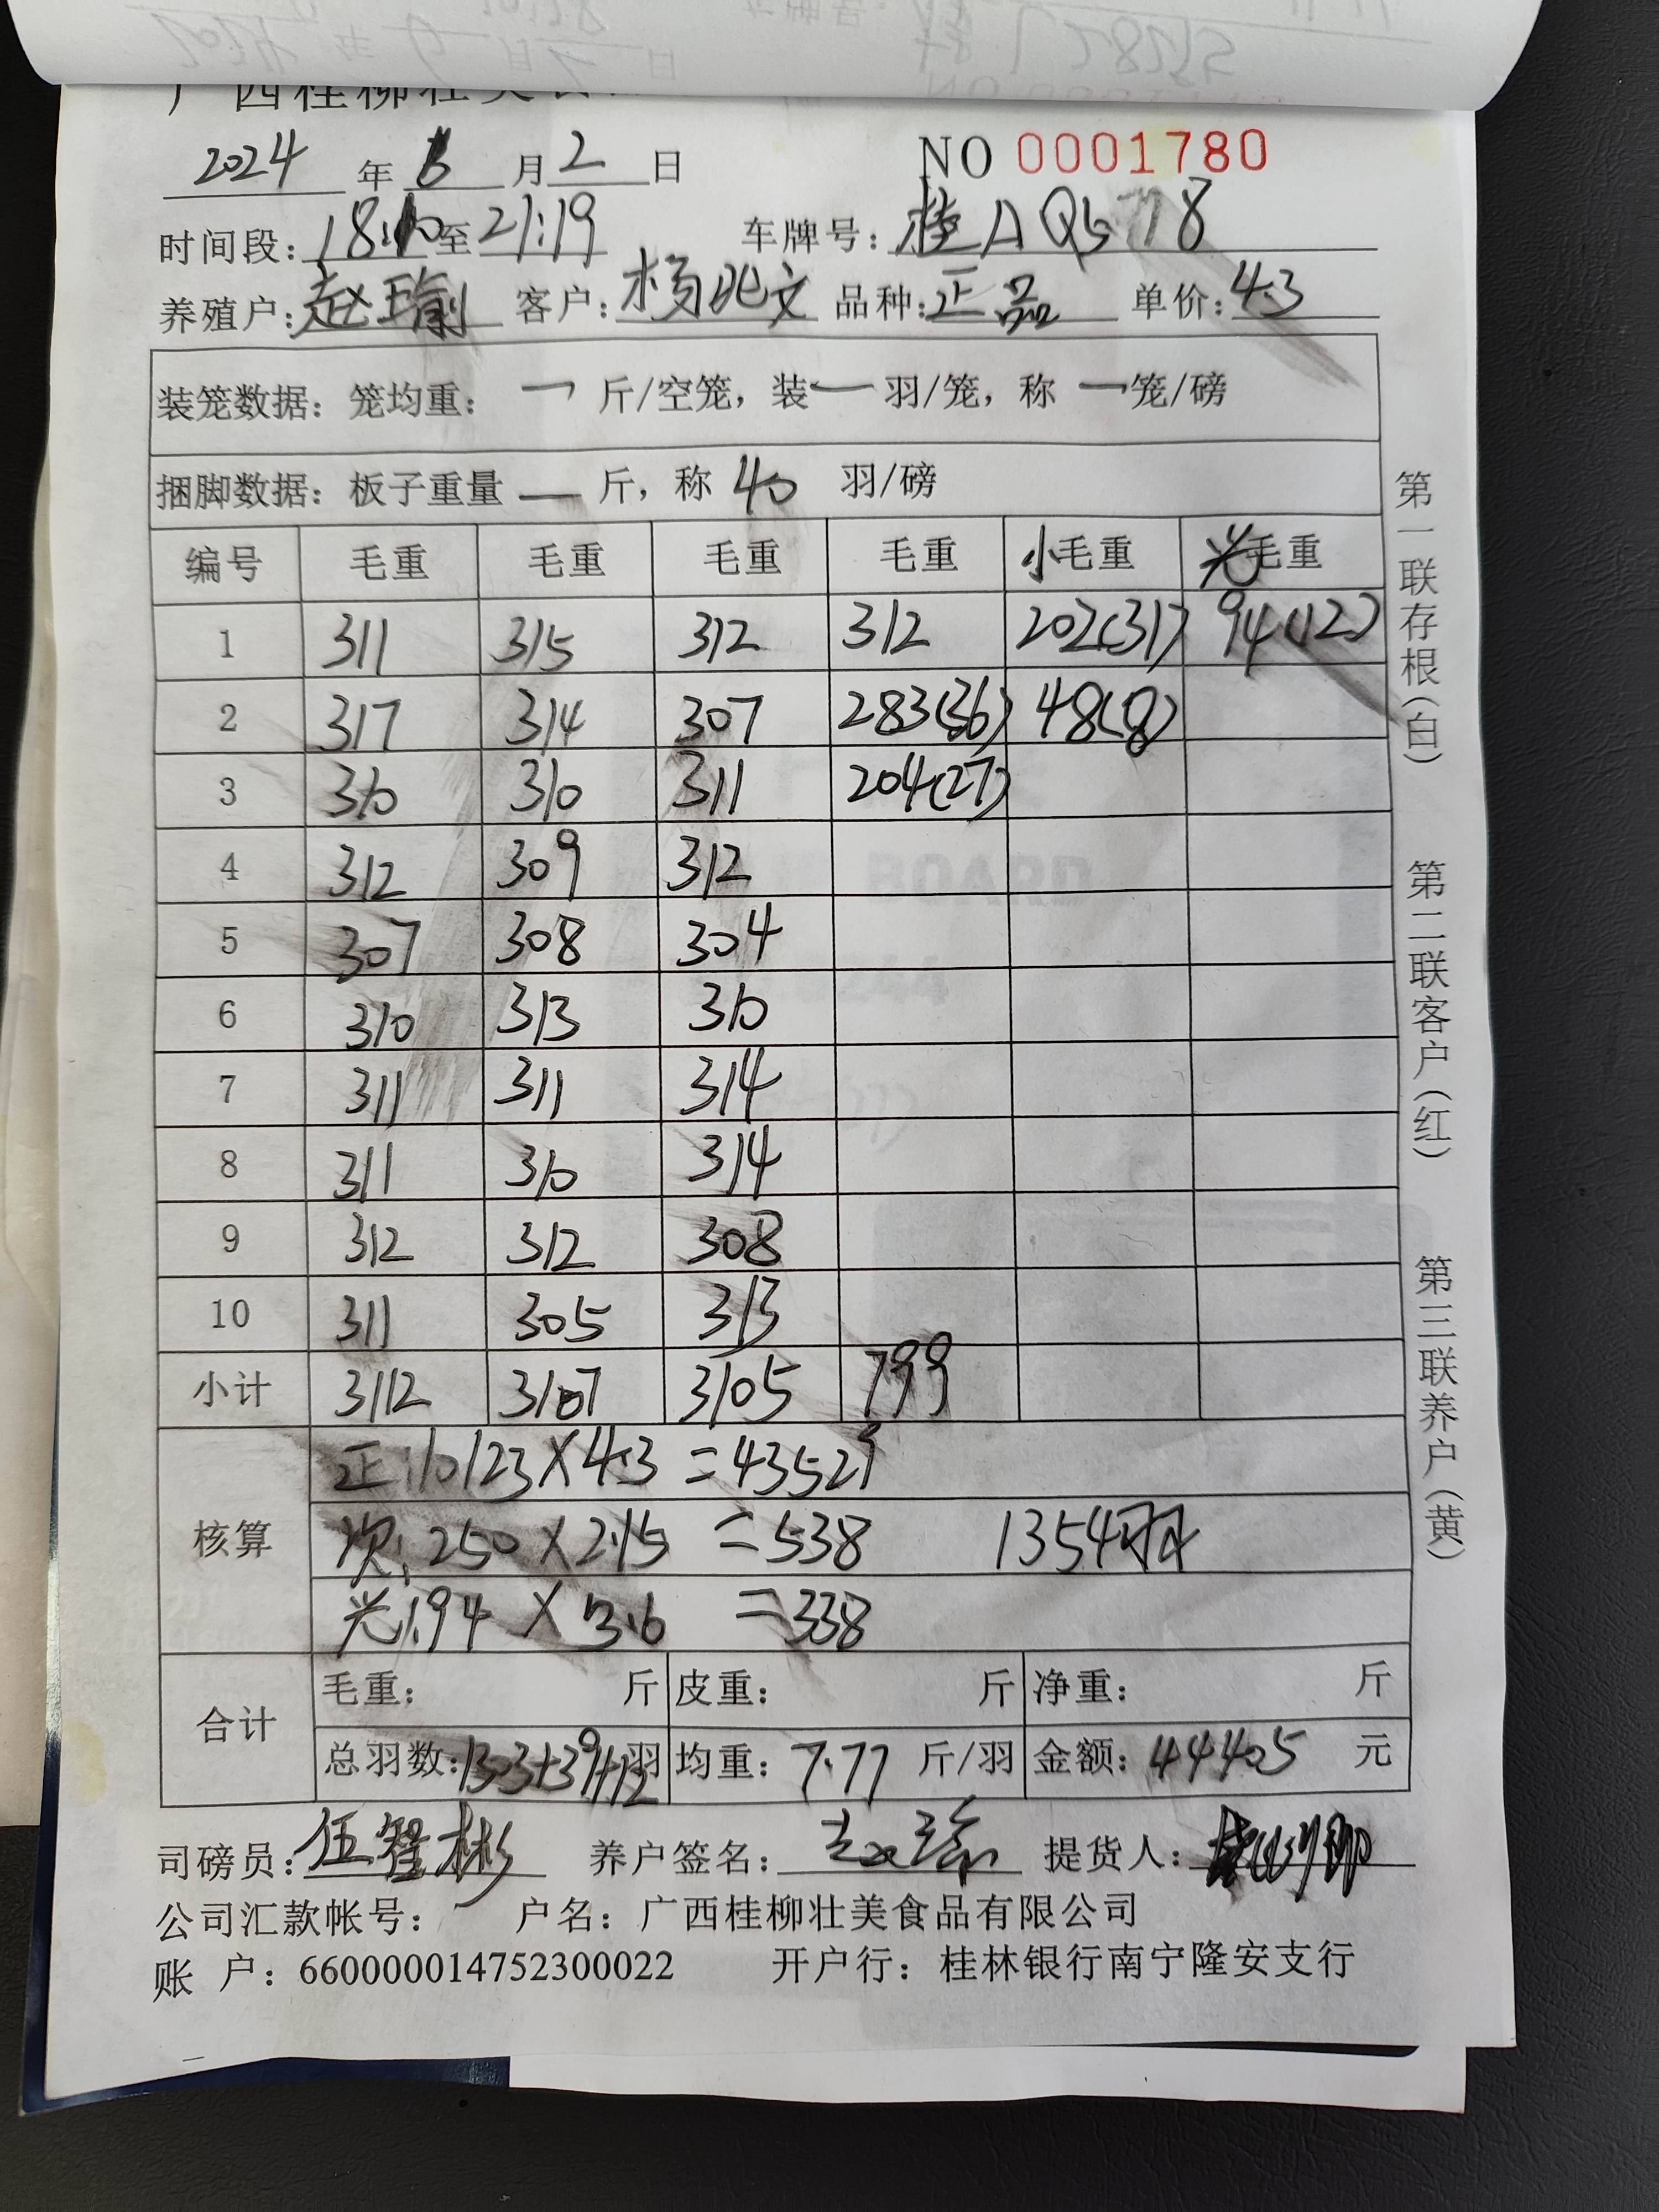 广西桂柳壮美
2024 年 8 月 2 日 NO 0001780
时间段: 18:10 至 21:19 车牌号: 桂A Q5778
养殖户: 赵瑜 客户: 杨兆文 品种: 正品 单价: 4.3
装笼数据: 笼均重: 一 斤/空笼, 装 一 羽/笼, 称 一 笼/磅
捆脚数据: 板子重量 — 斤, 称 40 羽/磅
编号 毛重 毛重 毛重 毛重 小毛重 光毛重
1 311 315 312 312 202(31) 94(12)
2 317 314 307 283(36) 48(8)
3 310 310 311 204(27)
4 312 309 312
5 307 308 304
6 310 313 310
7 311 311 314
8 311 310 314
9 312 312 308
10 311 305 313
小计 3112 3107 3105 799
核算 正:10123×4.3 =43529
次:250×2.15 =538 1354羽
光:94 × 3.6 =338
合计 毛重: 斤 皮重: 斤 净重: 斤
总羽数: 1303+39+12 羽 均重: 7.77 斤/羽 金额: 44405 元
司磅员: 伍智彬 养户签名: 赵瑜 提货人:
公司汇款帐号: 户名: 广西桂柳壮美食品有限公司
账 户: 660000014752300022 开户行: 桂林银行南宁隆安支行
第一联存根(白) 第二联客户(红) 第三联养户(黄)